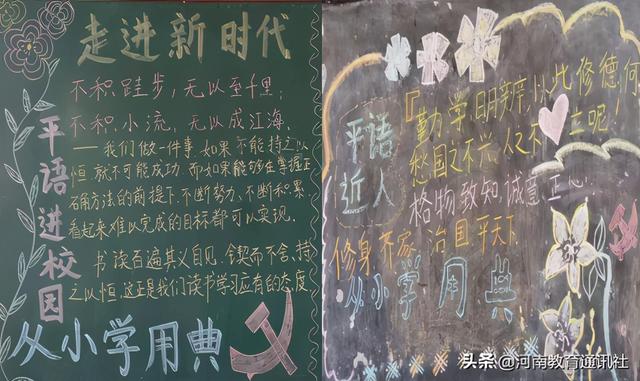 走进新时代
平语进校园
不积跬步，无以至千里；
不积小流，无以成江海。
——我们做一件事，如果不能持之以
恒就不可能成功。而如果能够在掌握正
确方法的前提下，不断努力、不断积累，
看起来难以完成的目标都可以实现。
书读百遍其义自见，锲而不舍、持
之以恒，这正是我们读书学习应有的态度。
从小学用典
平语
近人
『勤学、明辨，以此修德，何
愁国之不兴，人不立呢！
格物致知，诚意正心
修身、齐家、治国平天下
从小学用典
头条@河南教育通讯社